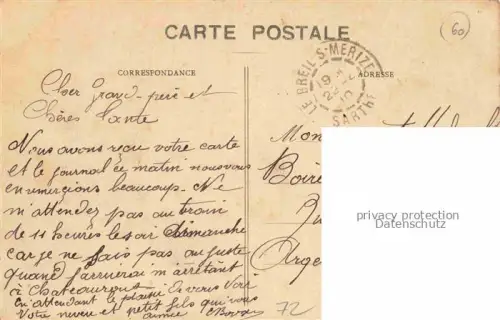 CARTE POSTALE
60
CORRESPONDANCE
ADRESSE
LE BREIL-S-MERIZE
SARTHE
Cher Grand-père et
Chères Tante
Nous avons reçu votre carte
et le journal ce matin nous vous
en remercions beaucoup. Ne
m'attendez pas au train
de 11 heures le soir dimanche
car je ne sais pas au juste
quand j'arriverai m'arrêtant
à Chateauroux
en attendant le plaisir de vous voir
Votre neveu et petit fils qui vous
aime
Mon
Boire
Argen
privacy protection
Datenschutz
72